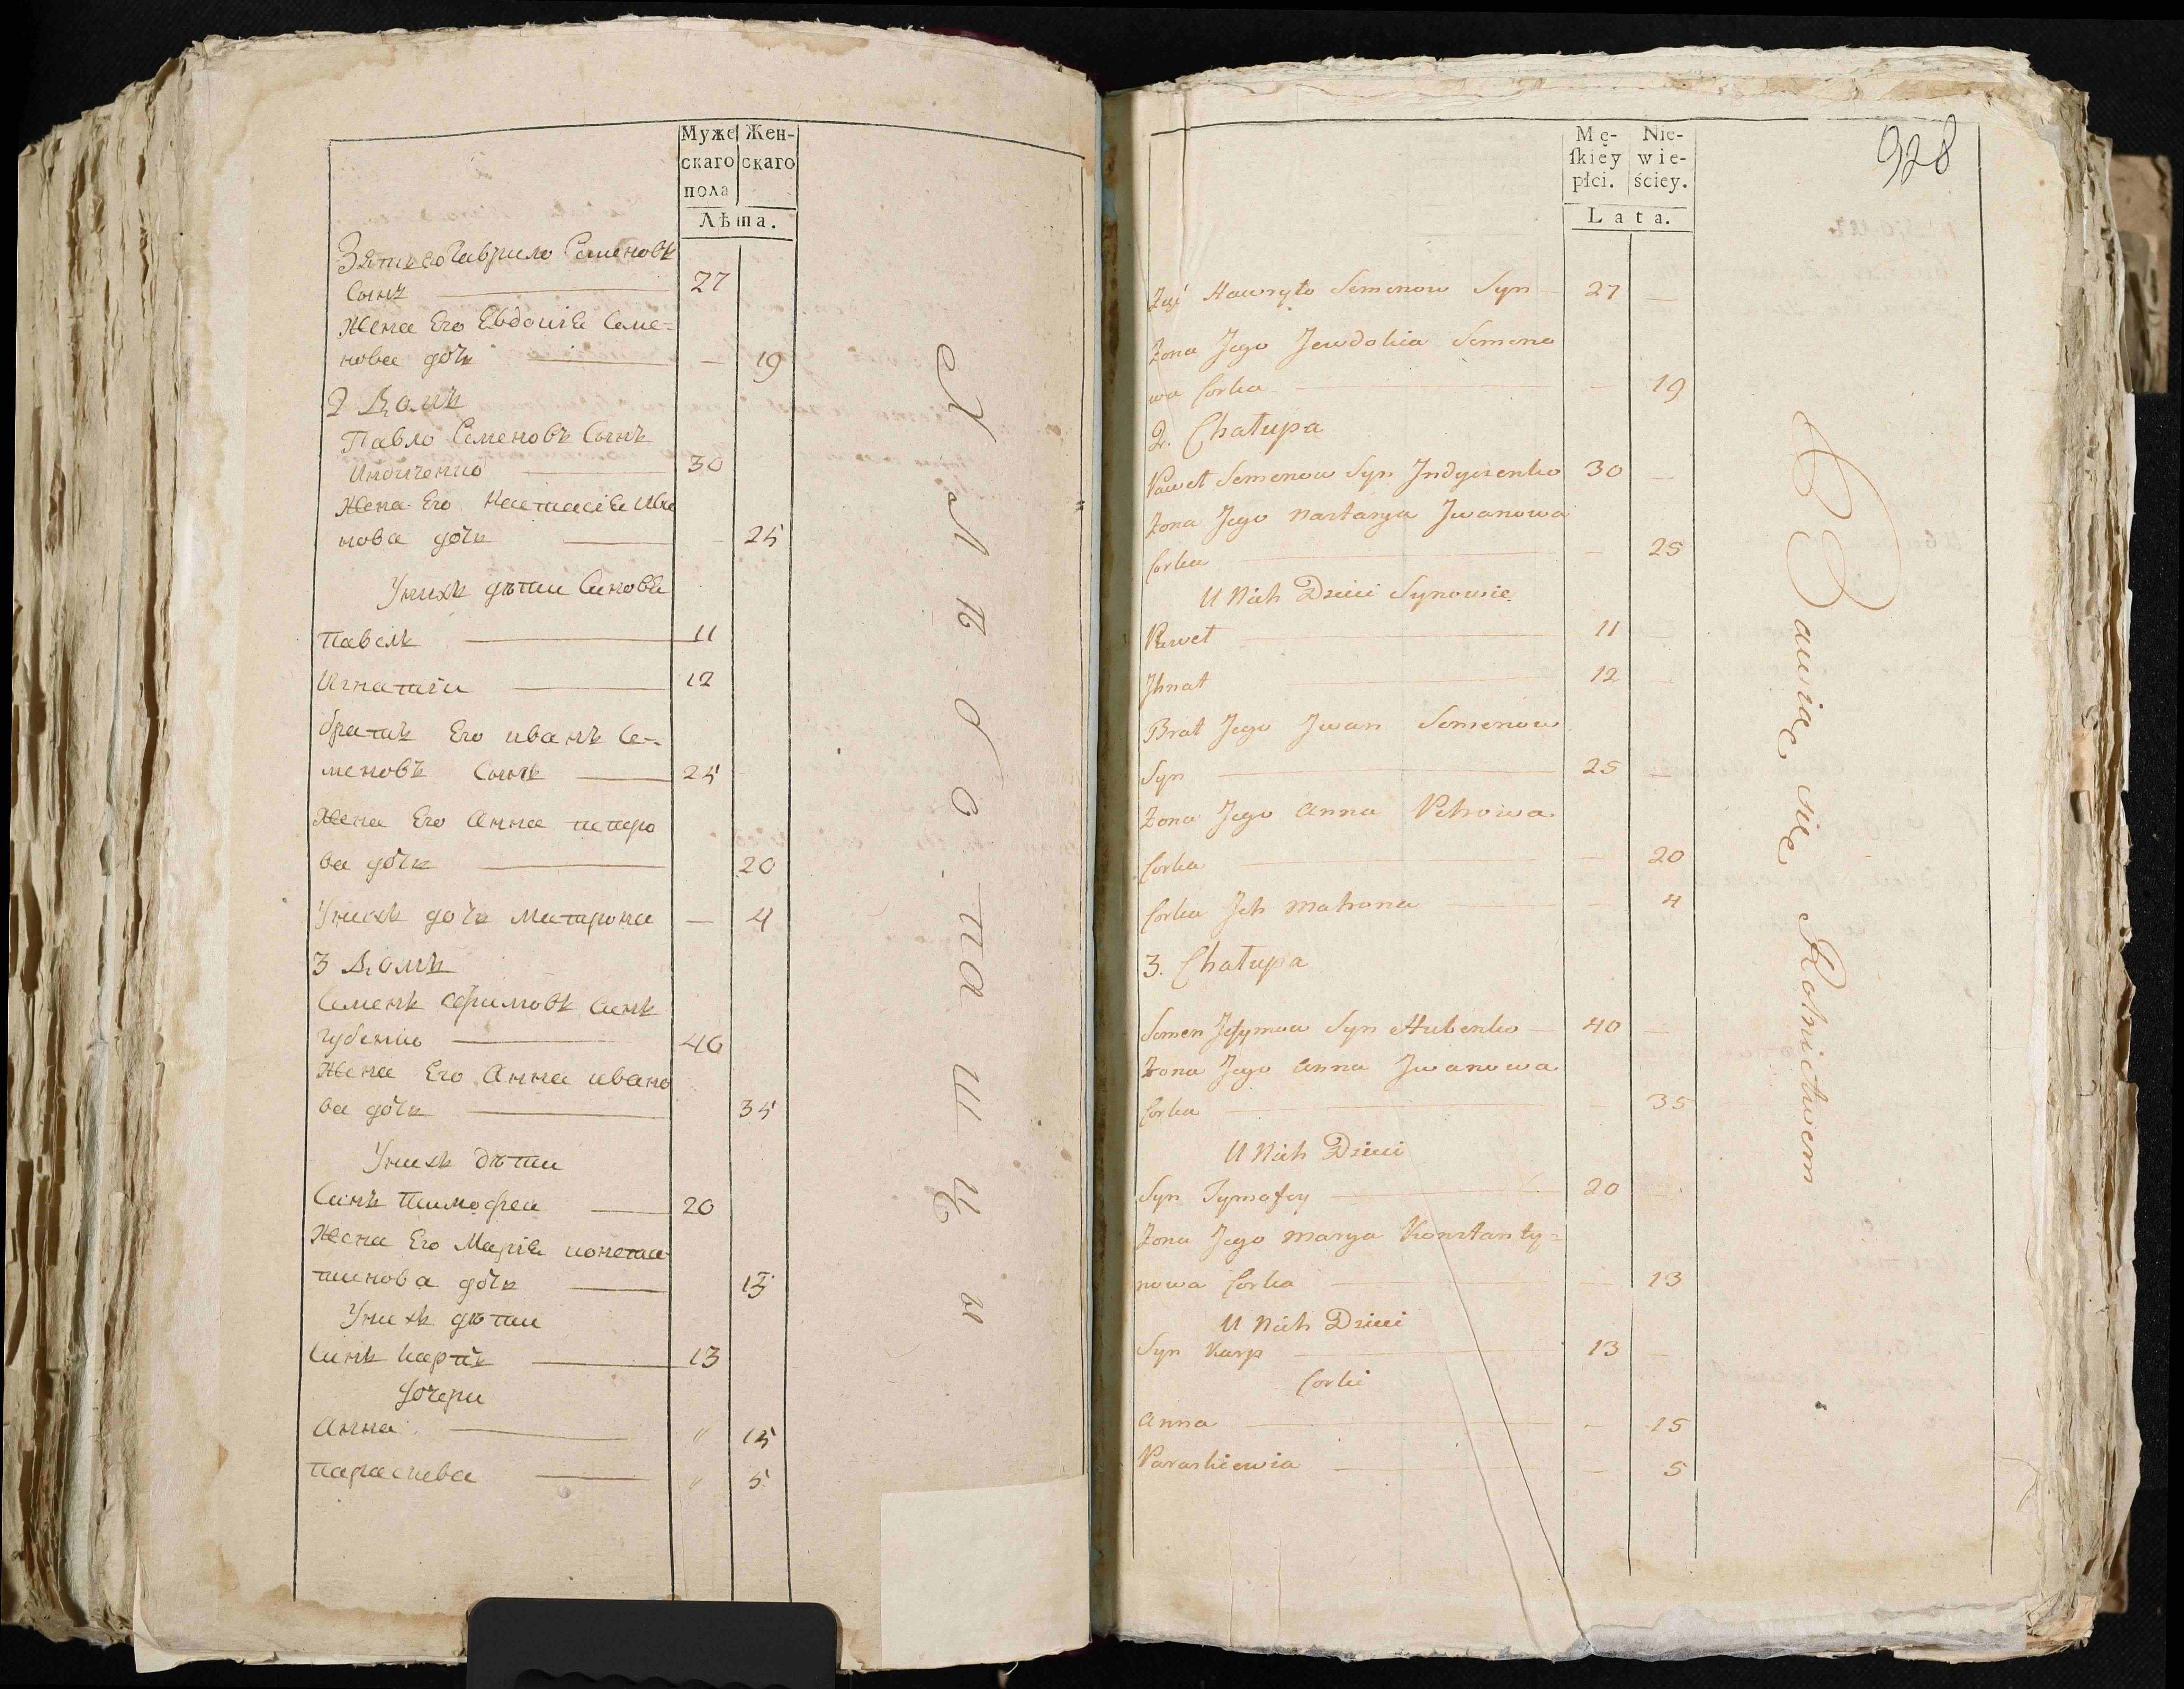 Муже Жен-
скаго скаго
пола
Лѣта.
Зять его Гаврило Семеновъ
Сынъ 27
Жена Его Евдокіѣ Семе=
нова дочь — 19
2 Домъ
Павло Семеновъ Сынъ
Индиченко 30
Жена Его Настасіѣ Ива
нова дочь - 25
Унихъ дѣти Синовѣ
Павелъ 11
Игнатіи 12
братъ Его иванъ Се-
меновъ Сынъ 25
Жена Его Анна петро
ва дочь 20
Унихъ дочь Матрона — 4
3 Домъ
Семенъ ефимовъ Синъ
губенко 40
Жена Его Анна ивано
ва дочь 35
Унихъ дѣти
Синъ тимофеи 20
Жена Его Маріѣ констан
тинова дочь 13
Унихъ дѣти
Синъ карпъ 13
дочери
Анна " 15
параскева " 5
Хлѣбопашцы
928
Mę- Nie-
ſkiey wie-
płci. ściey.
Lata.
Zięć Hawryło Semenow Syn 27 —
Żona Jego Jewdokia Semeno
wa Corka — 19
2. Chałupa
Paweł Semenow Syn Jndyczenko 30 —
Żona Jego Nastasya Jwanowa
Corka — 25
U Nich Dzieci Synowie
Paweł 11 —
Jhnat 12 —
Brat Jego Jwan Semenow
Syn 25 —
Żona Jego Anna Petrowa
Corka — 20
Corka Jch Matrona — 4
3. Chałupa
Semen Jefymow Syn Hubenko 40 —
Żona Jego Anna Jwanowa
Corka — 35
U Nich Dzieci
Syn Tymofey 20
Żona Jego Marya Konstanty=
nowa Corka — 13
U Nich Dzieci
Syn Karp 13 —
Corki
Anna — 15
Paraskiewia — 5
Bawiąc się Rolnictwem